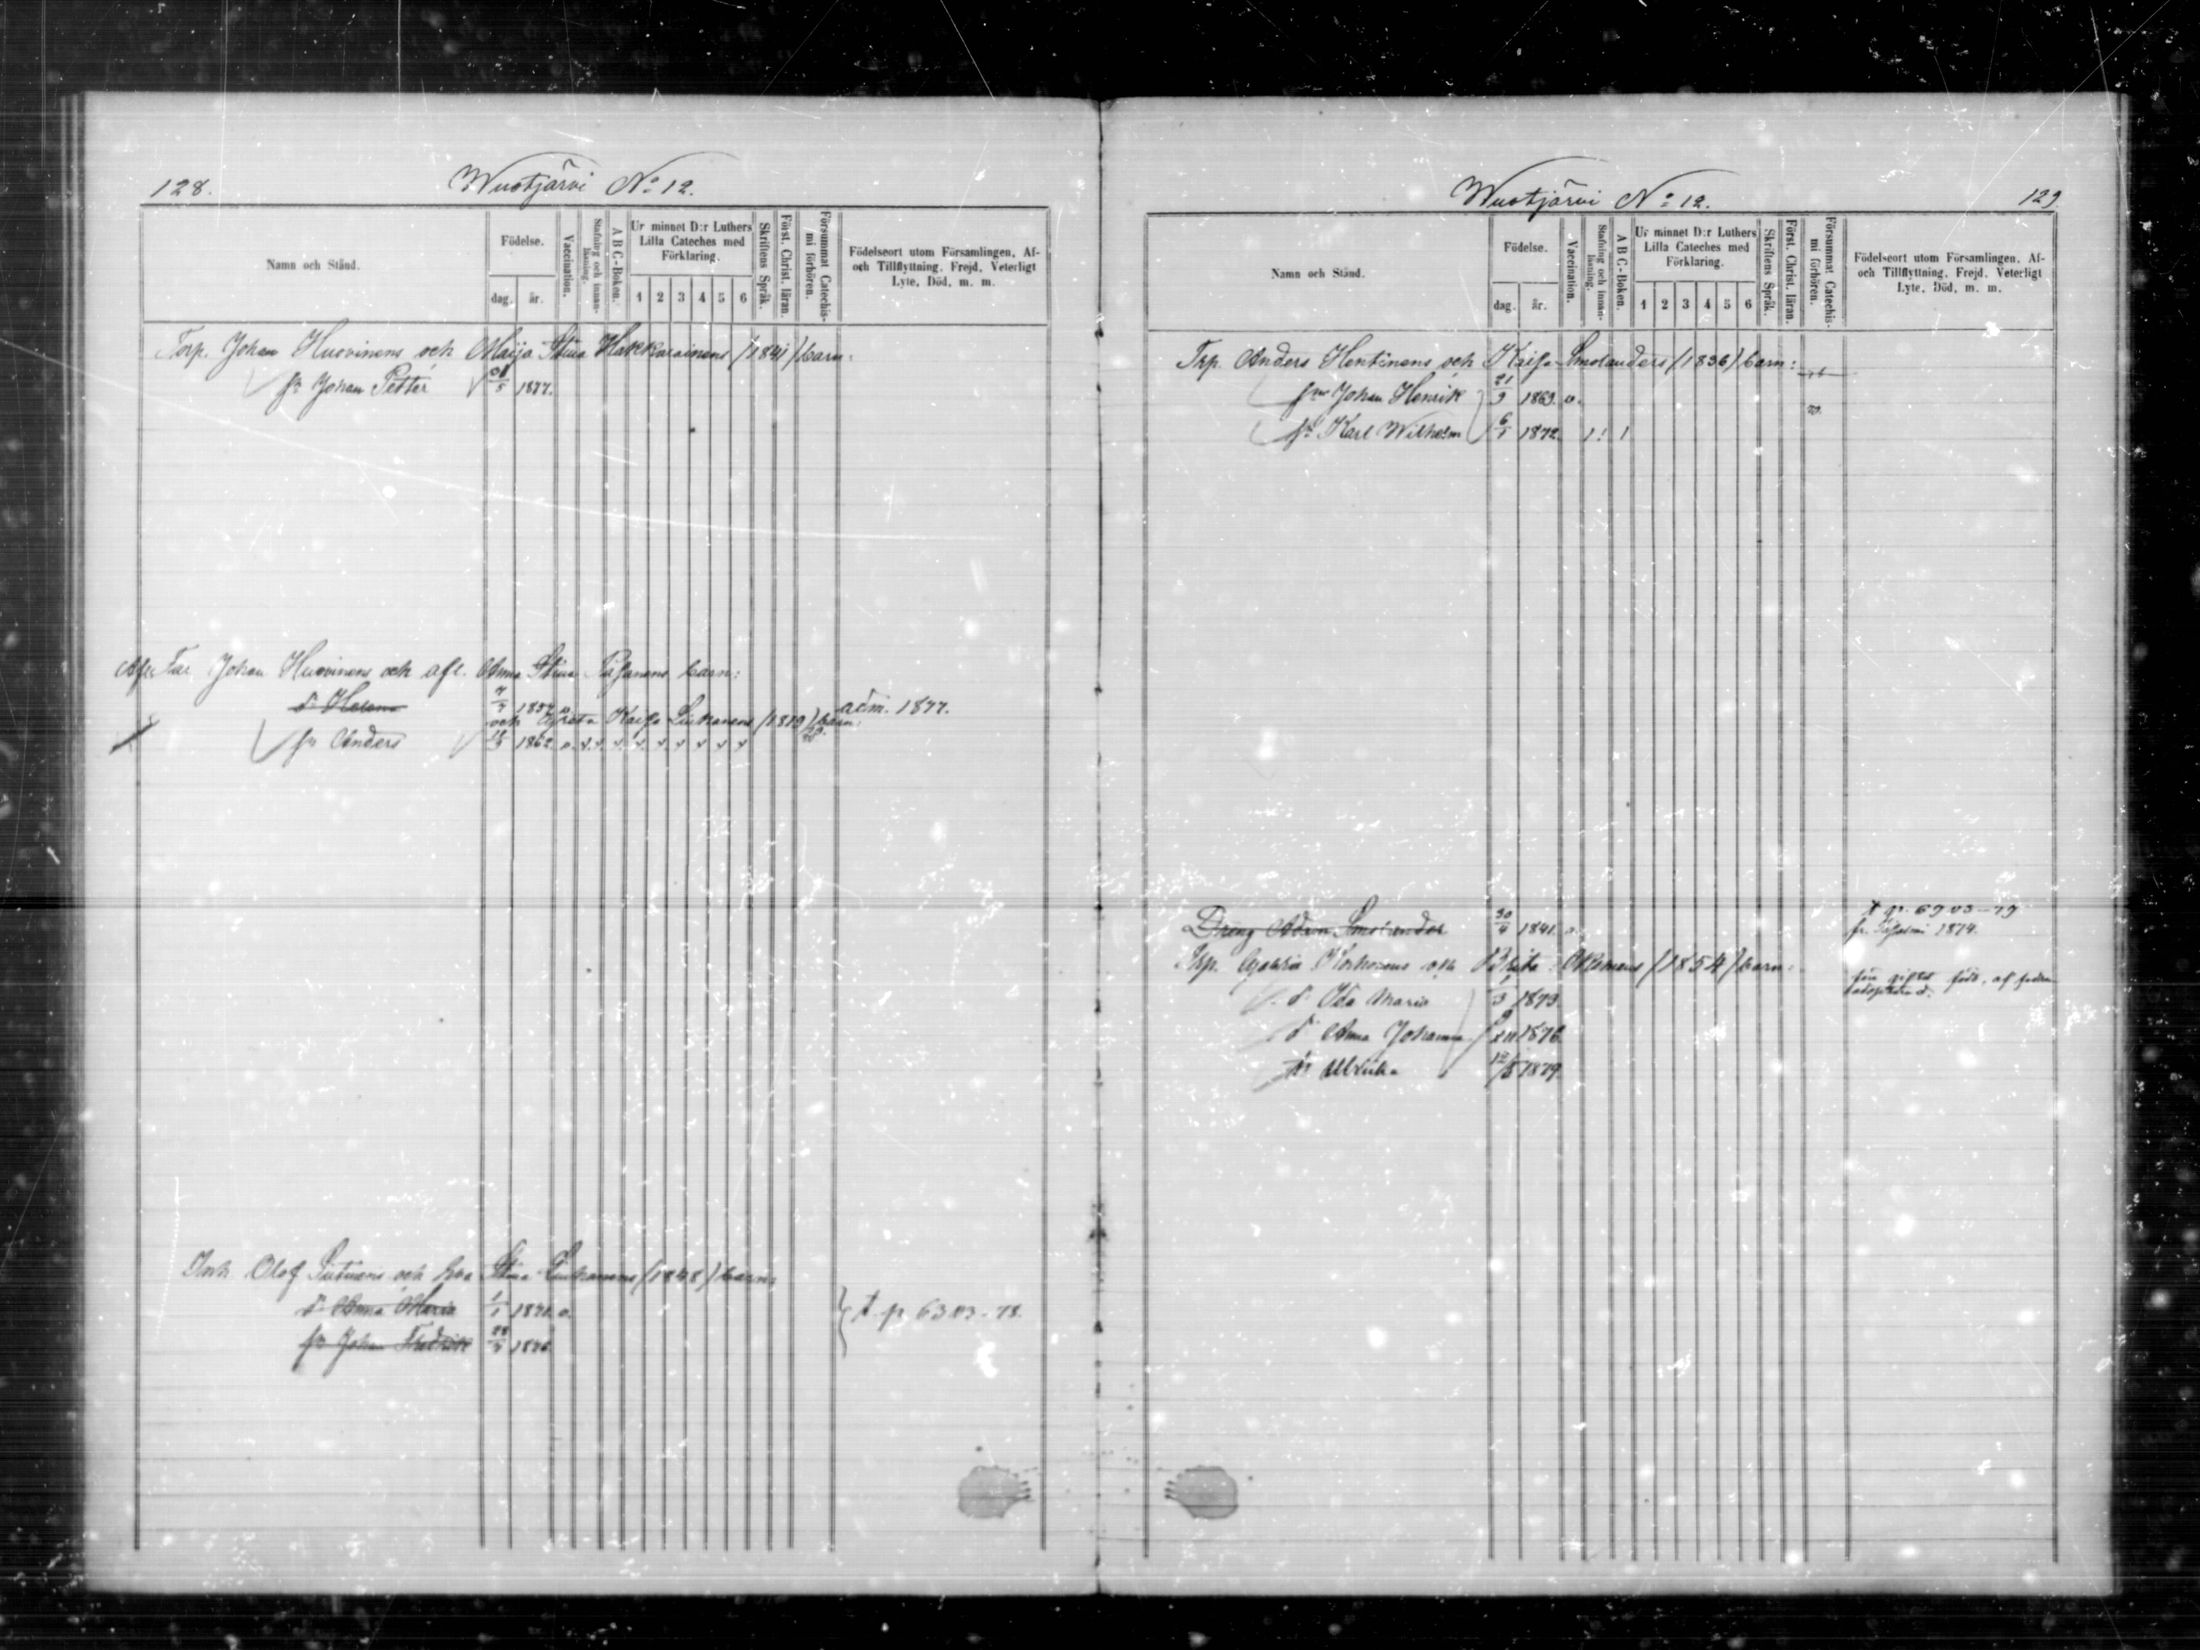 128.
Wuotjärvi No 12.
Namn och Stånd.
Födelse.
dag.
år.
Vaccination.
Stafning och innan-läsning.
A B C-Boken.
Ur minnet D:r Luthers
Lilla Cateches med
Förklaring.
1 2 3 4 5 6
Skriftens Språk.
Först. Christ. läran.
Försummat Catechis-
mi förhören.
Födelseort utom Församlingen, Af-
och Tillflyttning, Frejd, Veterligt
Lyte, Död, m. m.
Torp. Johan Huovinens och Maija Stina Hakkaraisens (1841) barn:
sn Johan Petter 5 1877.
Johan Huovinens och afl. Anna Stina barn:
dr Helena adm. 1877.
och Greta Kaisa Liukonens (1819) barn:
sn Anders 1862. v.
Inh. Olof och Eva Stina Liukonens (1848) barn:
dr Anna Maria 1/1 1871. v.
sn Johan Fredrik
t. p. 63 03-78.
Wuotjärvi No 12.
129
Namn och Stånd.
Födelse.
dag.
år.
Vaccination.
Stafning och innan-läsning.
A B C-Boken.
Ur minnet D:r Luthers
Lilla Cateches med
Förklaring.
1 2 3 4 5 6
Skriftens Språk.
Först. Christ. läran.
Försummat Catechis-
mi förhören.
Födelseort utom Församlingen, Af-
och Tillflyttning, Frejd, Veterligt
Lyte, Död, m. m.
Trp. Anders Hentinens och Kaisa Smolanders (1836) barn:
sn Johan Henrik 21/9 1863. v.
sn Karl Wilhelm 6/1 1872.
t. p. 69 03-79
Dreng Adam Smolander 30/4 1841. v. fr. 1874.
Trp. Korhonens och Brita (1854) barn:
dr Ida Maria 3 1873
dr Anna Johanna 1876.
dr Ulrika 12/5 1879.